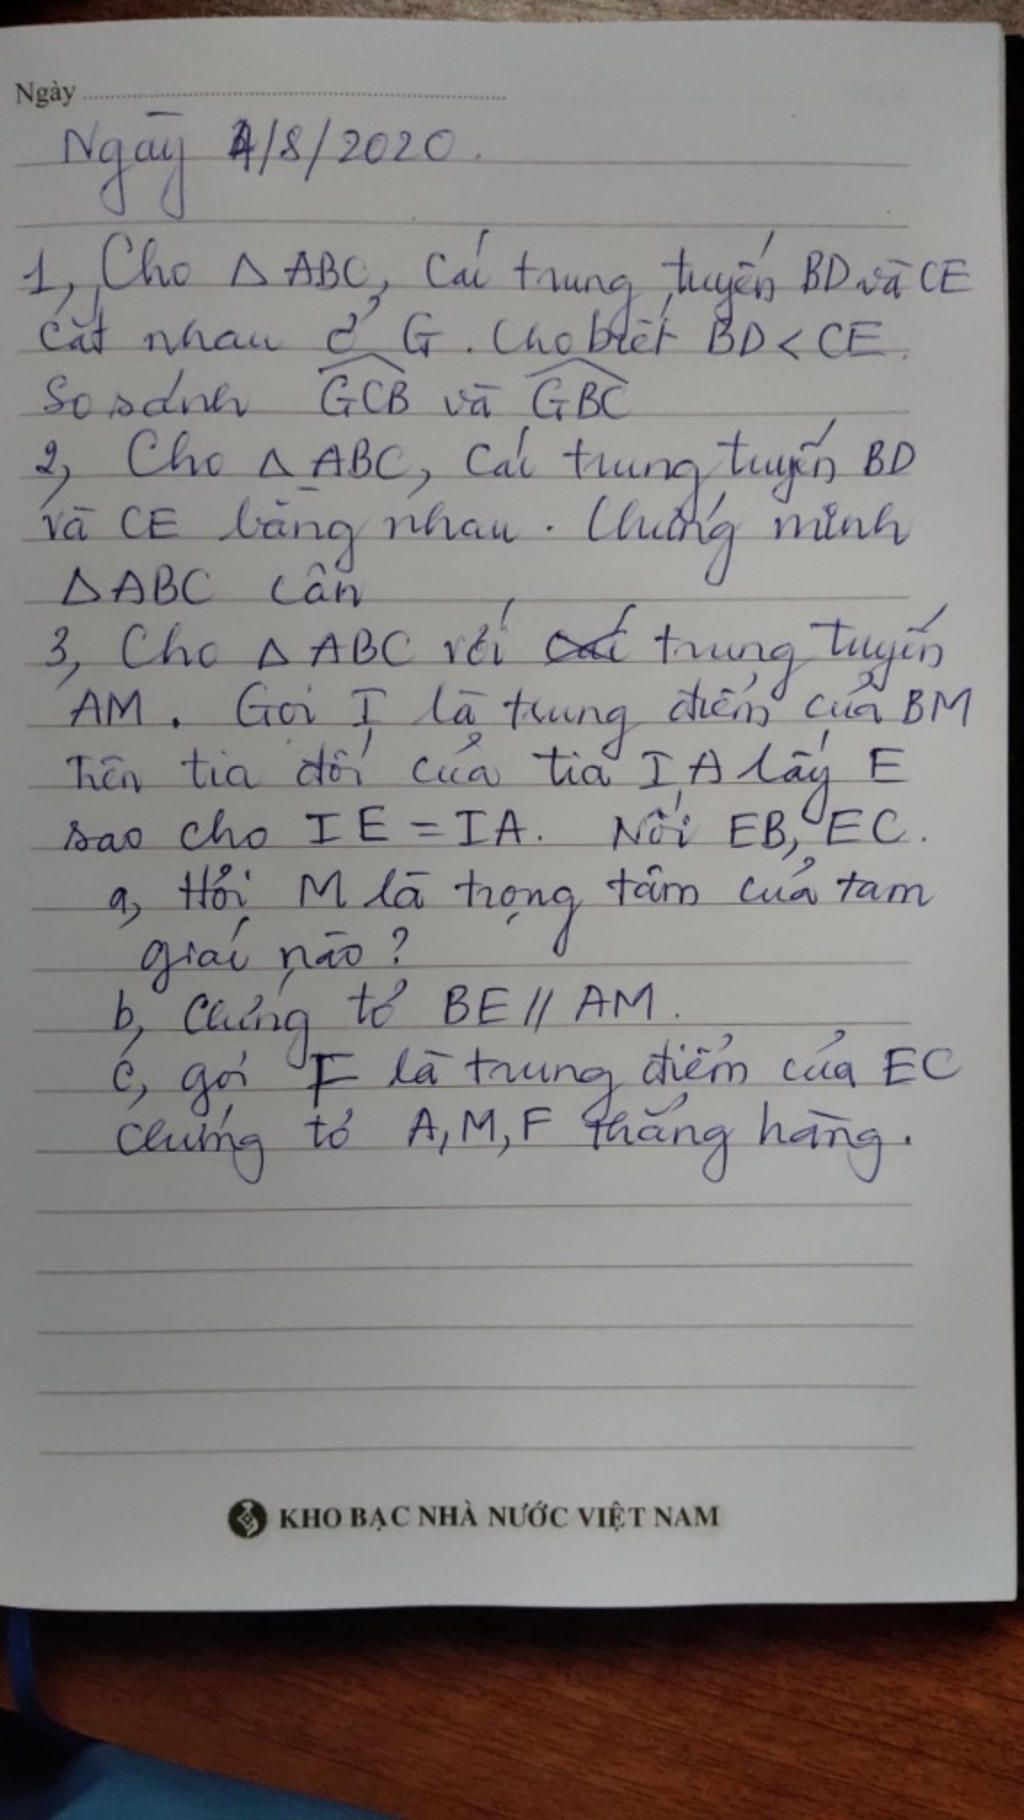 Ngày
Ngày 4/8/2020.
1, Cho △ ABC, Các trung tuyến BD và CE
cắt nhau ở G. Cho biết BD < CE.
So sánh GCB và GBC
2, Cho △ ABC, Các trung tuyến BD
và CE bằng nhau. Chứng minh
△ABC cân
3, Cho △ ABC với các trung tuyến
AM. Gọi I là trung điểm của BM
Trên tia đối của tia IA lấy E
sao cho IE = IA. Nối EB, EC.
a, Hỏi M là trọng tâm của tam
giác nào?
b, Chứng tỏ BE // AM.
c, gọi F là trung điểm của EC
Chứng tỏ A, M, F thẳng hàng.
KHO BẠC NHÀ NƯỚC VIỆT NAM